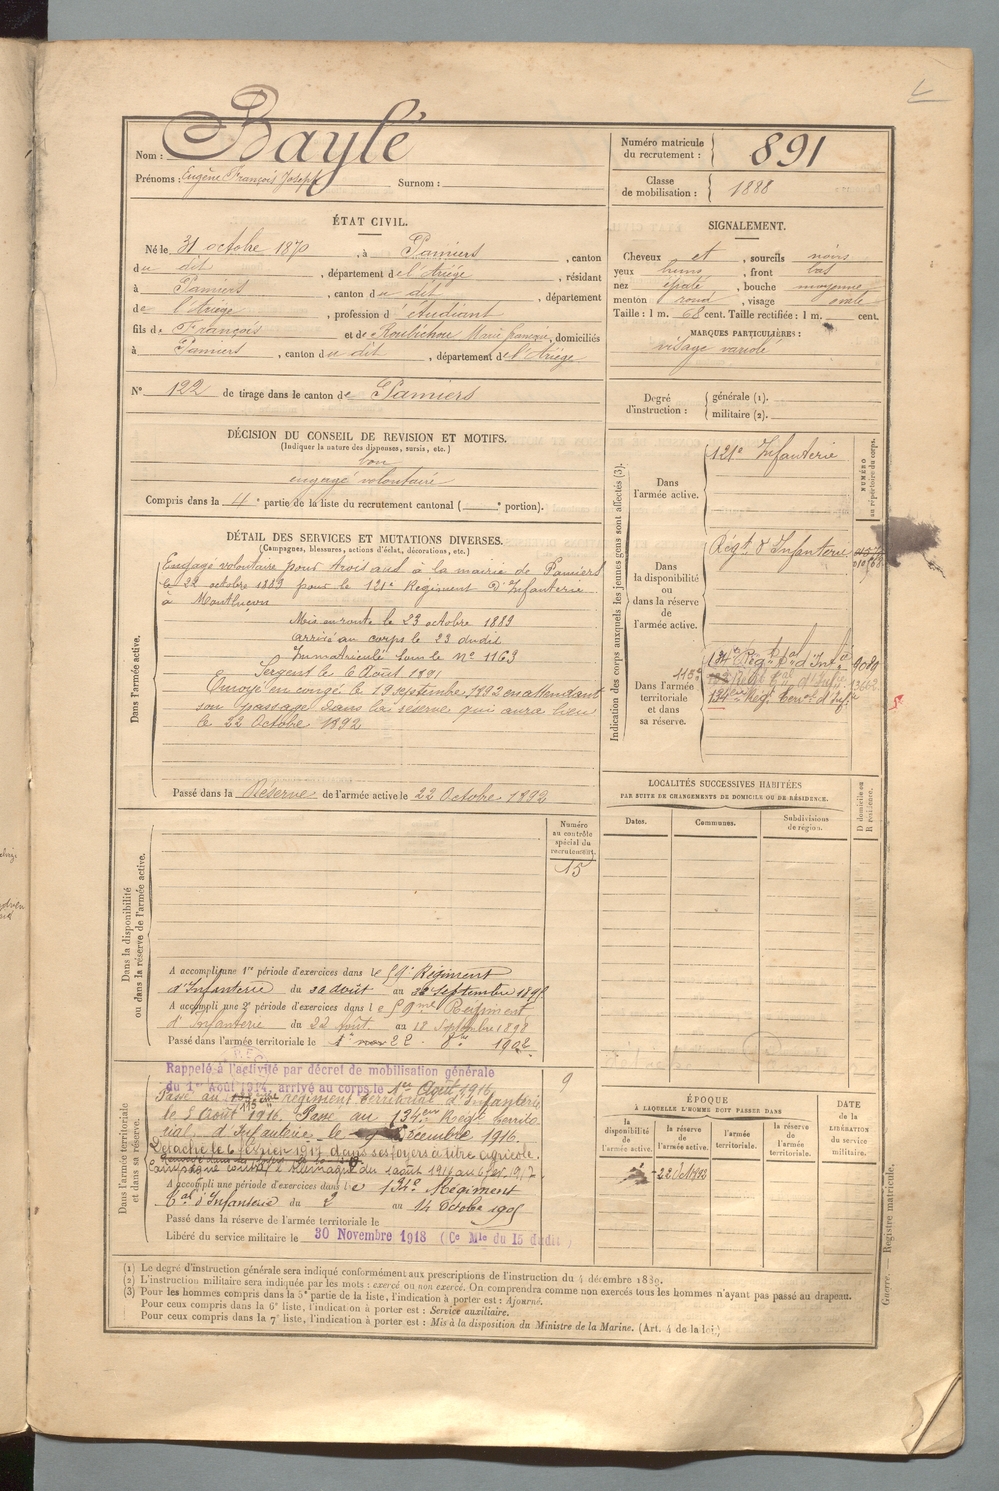 Nom : Baylé
Prénoms : Eugène François Joseph Surnom :
Numéro matricule du recrutement : 891
Classe de mobilisation : 1888
ÉTAT CIVIL.
Né le 31 octobre 1870, à Pamiers, canton
du dit, département de l'Ariège, résidant
à Pamiers, canton du dit, département
de l'Ariège, profession d'étudiant
fils de François et de Roubichou Marie françoise, domiciliés
à Pamiers, canton du dit, département de l'Ariège
N° 122 de tirage dans le canton de Pamiers
SIGNALEMENT.
Cheveux et, sourcils noirs
yeux bruns, front bas
nez épaté, bouche moyenne
menton rond, visage ovale
Taille : 1 m. 68 cent. Taille rectifiée : 1 m. cent.
MARQUES PARTICULIÈRES :
visage variolé
Degré d'instruction : générale (1).
militaire (2).
DÉCISION DU CONSEIL DE REVISION ET MOTIFS.
(Indiquer la nature des dispenses, sursis, etc.)
bon
engagé volontaire
Compris dans la 4e partie de la liste du recrutement cantonal ( e portion).
DÉTAIL DES SERVICES ET MUTATIONS DIVERSES.
(Campagnes, blessures, actions d'éclat, décorations, etc.)
Dans l'armée active.
Engagé volontaire pour trois ans à la mairie de Pamiers
le 22 octobre 1889 pour le 121e Régiment d'Infanterie
à Montluçon
Mis en route le 23 octobre 1889
arrivé au corps le 23 dudit
Immatriculé sous le n° 1163
Sergent le 6 Août 1891
Envoyé en congé le 19 septembre 1892 en attendant
son passage dans la réserve qui aura lieu
le 22 Octobre 1892
Passé dans la Réserve de l'armée active le 22 Octobre 1892
Indication des corps auxquels les jeunes gens sont affectés (3).
NUMÉRO au répertoire du corps.
Dans l'armée active.
121e Infanterie
Dans la disponibilité ou dans la réserve de l'armée active.
Régt d'Infanterie
Dans l'armée territoriale et dans sa réserve.
134e Régt tal d'Infie 9089
115e
134eme Régt Terral d'Infie
LOCALITÉS SUCCESSIVES HABITÉES
PAR SUITE DE CHANGEMENTS DE DOMICILE OU DE RÉSIDENCE.
Dates. Communes. Subdivisions de région. D domicile ou R résidence.
Dans la disponibilité ou dans la réserve de l'armée active.
Numéro au contrôle spécial du recrutement.
15
A accompli une 1re période d'exercices dans le 59e Régiment
d'Infanterie du 30 août au 26 Septembre 189
A accompli une 2e période d'exercices dans le 59me Régiment
d'Infanterie du 22 Août au 18 Septembre 1898
Passé dans l'armée territoriale le 1er
Dans l'armée territoriale et dans sa réserve.
Rappelé à l'activité par décret de mobilisation générale
du 1er Août 1914, arrivé au corps le 1er Août 1916
9
Passé au 115eme régiment territorial d'Infanterie
le 5 Août 1916. Passé au 134eme Regt territo-
rial d'Infanterie le Décembre 1916.
Détaché le 6 février 1917 dans ses foyers à titre agricole.
Campagne contre l'Allemagne du 1 août 1916 au 6 fev. 1917
A accompli une période d'exercices dans le 134e Régiment
tal d'Infanterie du 2 au 14 Octobre 1905
Passé dans la réserve de l'armée territoriale le
Libéré du service militaire le 30 Novembre 1918 (Ce Mle du 15 dudit)
ÉPOQUE
À LAQUELLE L'HOMME DOIT PASSER DANS
la disponibilité de l'armée active. la réserve de l'armée active. l'armée territoriale. la réserve de l'armée territoriale.
DATE de la LIBÉRATION du service militaire.
22 Oct 1892
Guerre. — Registre matricule.
(1) Le degré d'instruction générale sera indiqué conformément aux prescriptions de l'instruction du 4 décembre 1889.
(2) L'instruction militaire sera indiquée par les mots : exercé ou non exercé. On comprendra comme non exercés tous les hommes n'ayant pas passé au drapeau.
(3) Pour les hommes compris dans la 5e partie de la liste, l'indication à porter est : Ajourné.
Pour ceux compris dans la 6e liste, l'indication à porter est : Service auxiliaire.
Pour ceux compris dans la 7e liste, l'indication à porter est : Mis à la disposition du Ministre de la Marine. (Art. 4 de la loi.)